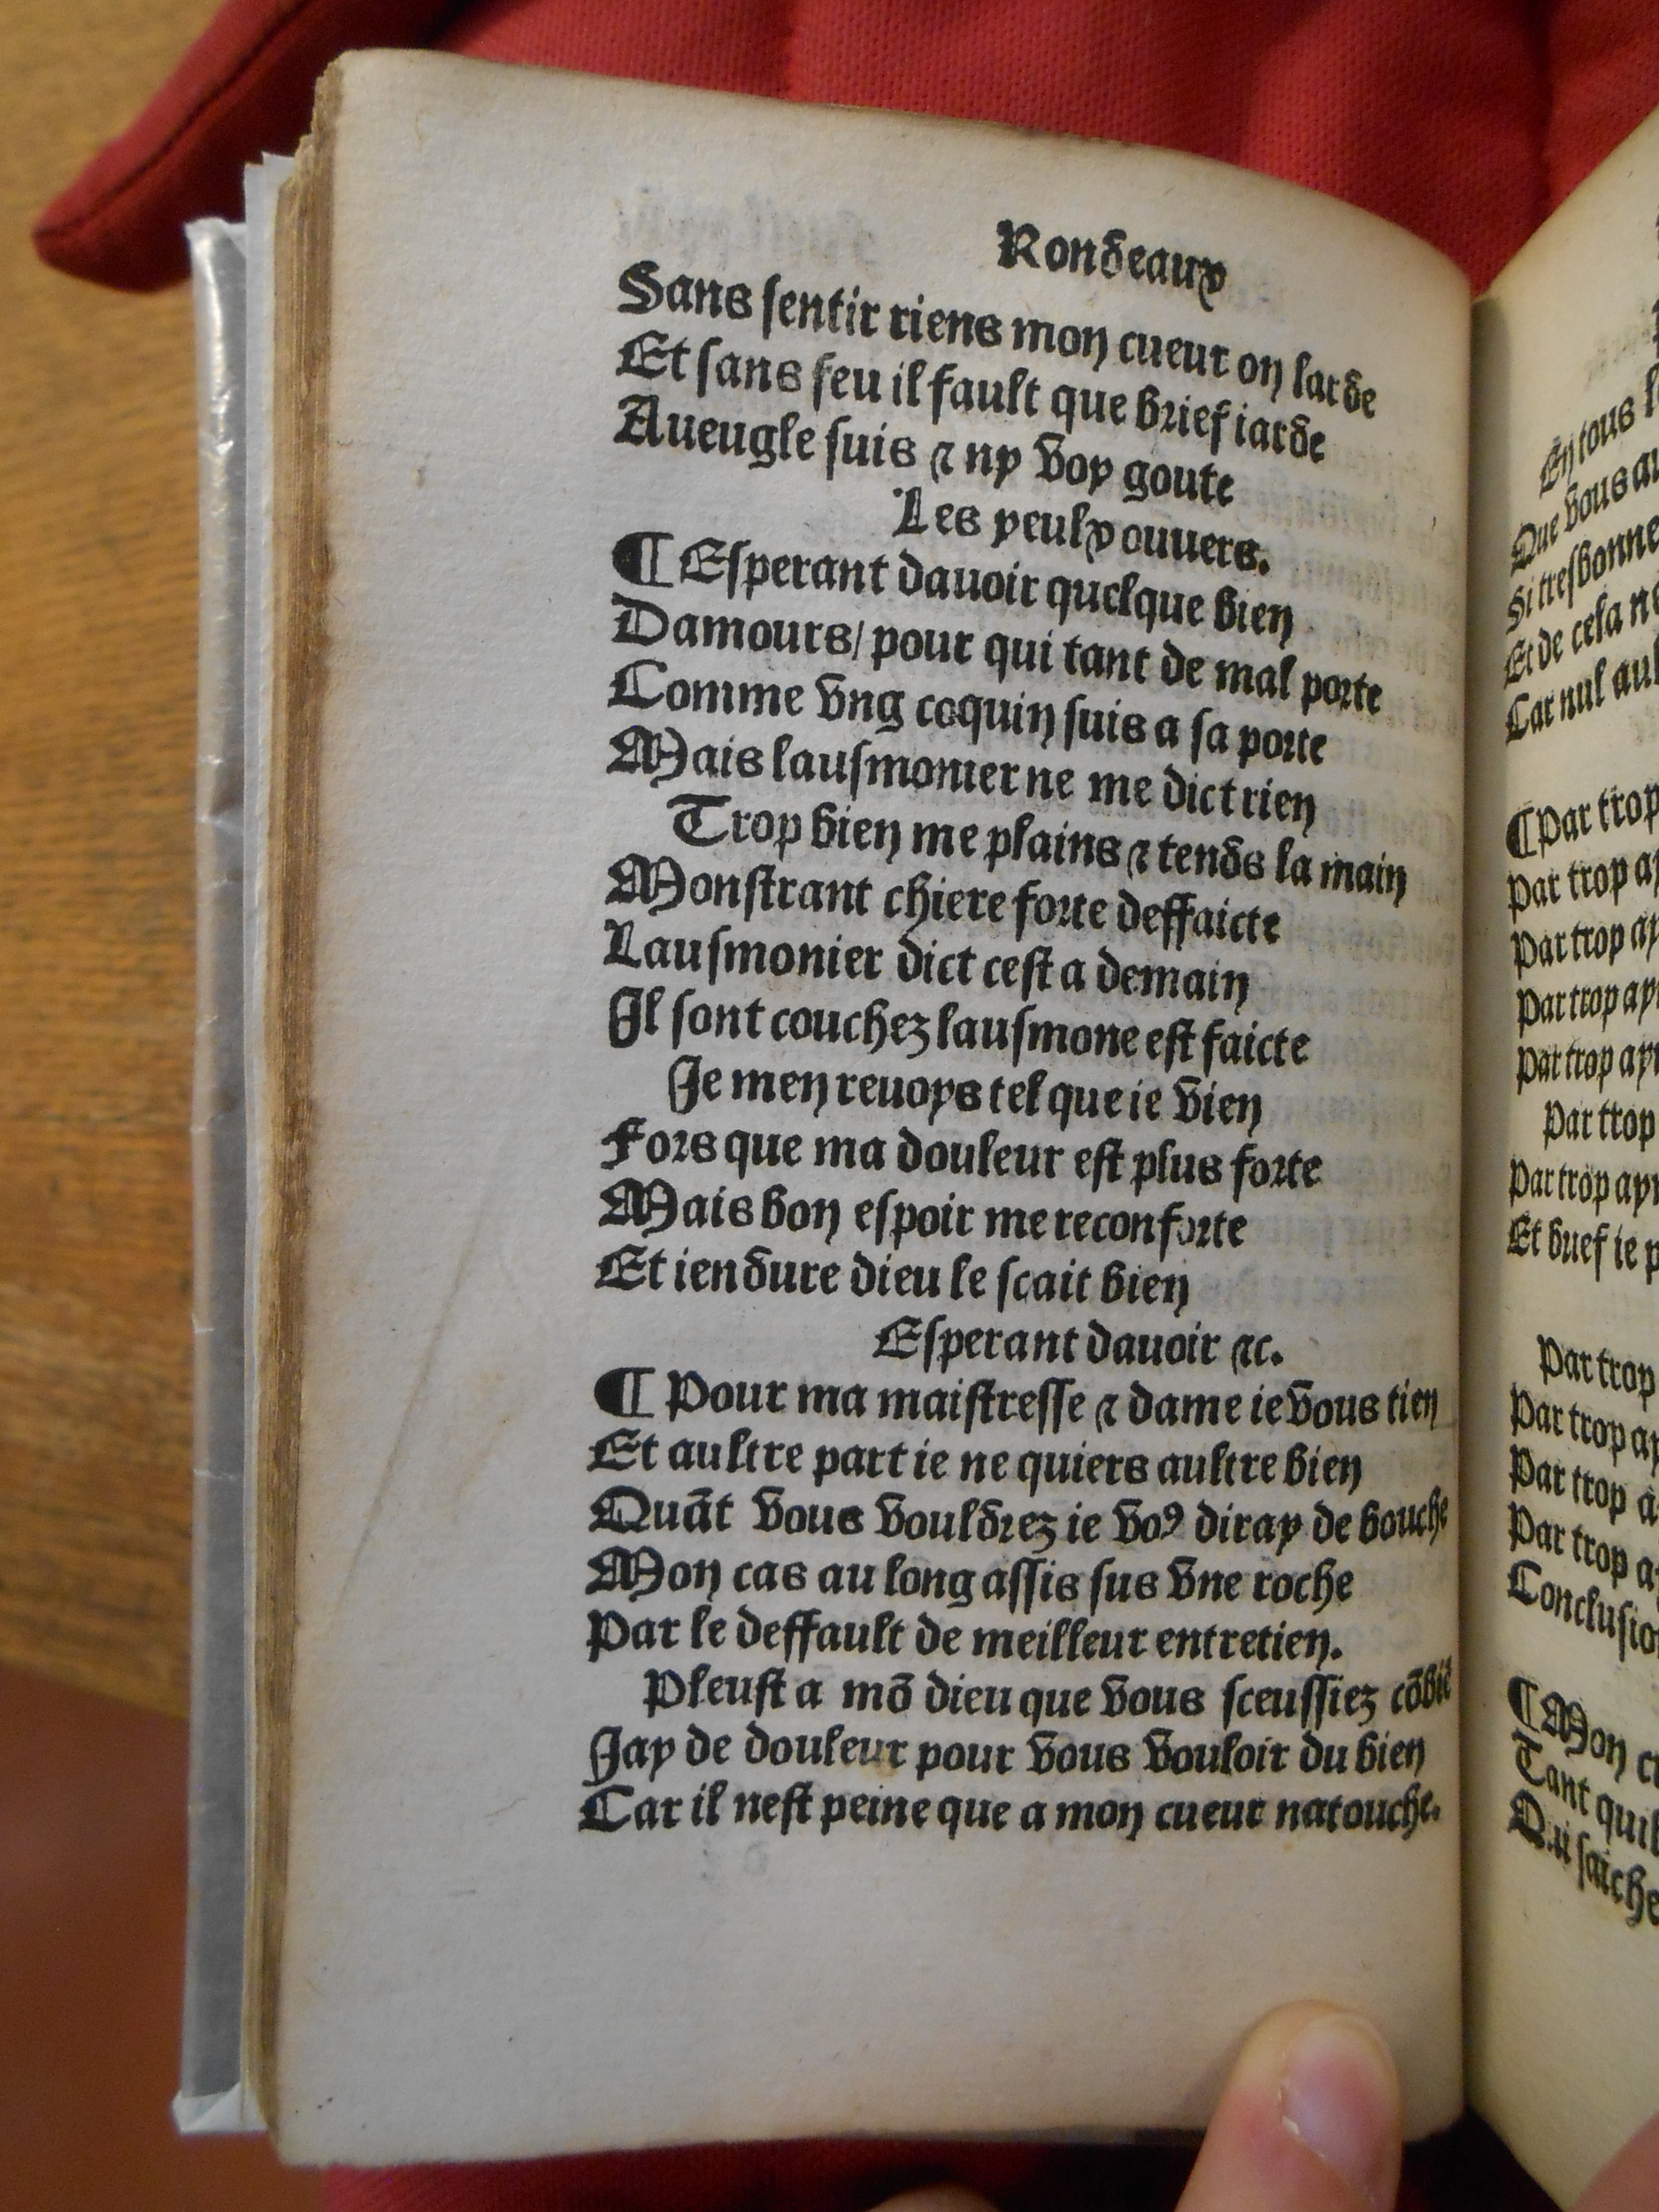 Rondeaux
Sans sentir riens mon cueur on larde
Et sans feu il fault que brief iarde
Aueugle suis ⁊ ny voy goute
Les yeulx ouuers.
¶ Esperant dauoir quelque bien
Damours/ pour qui tant de mal porte
Comme vng coquin suis a sa porte
Mais lausmonier ne me dict rien
Trop bien me plains ⁊ tends la main
Monstrant chiere forte deffaicte
Lausmonier dict cest a demain
Il sont couchez lausmone est faicte
Je men reuoys tel que ie vien
Fors que ma douleur est plus forte
Mais bon espoir me reconforte
Et iendure dieu le scait bien
Esperant dauoir ⁊c.
¶ Pour ma maistresse ⁊ dame ie vous tien
Et aultre part ie ne quiers aultre bien
Quāt vous vouldrez ie voꝰ diray de bouche
Mon cas au long assis sus vne roche
Par le deffault de meilleur entretien.
Pleust a mō dieu que vous sceussiez cōbiē
Jay de douleur pour vous vouloir du bien
Car il nest peine que a mon cueur natouche.
En tous
Que vous
Si tresbonne
Et de cela
Car nul
¶ Par trop
Par trop
Par trop
Par trop
Par trop
Par trop
Par trop
Et brief ie
Par trop
Par trop
Par trop
Par trop
¶ Mon
Tant
Qui saiche